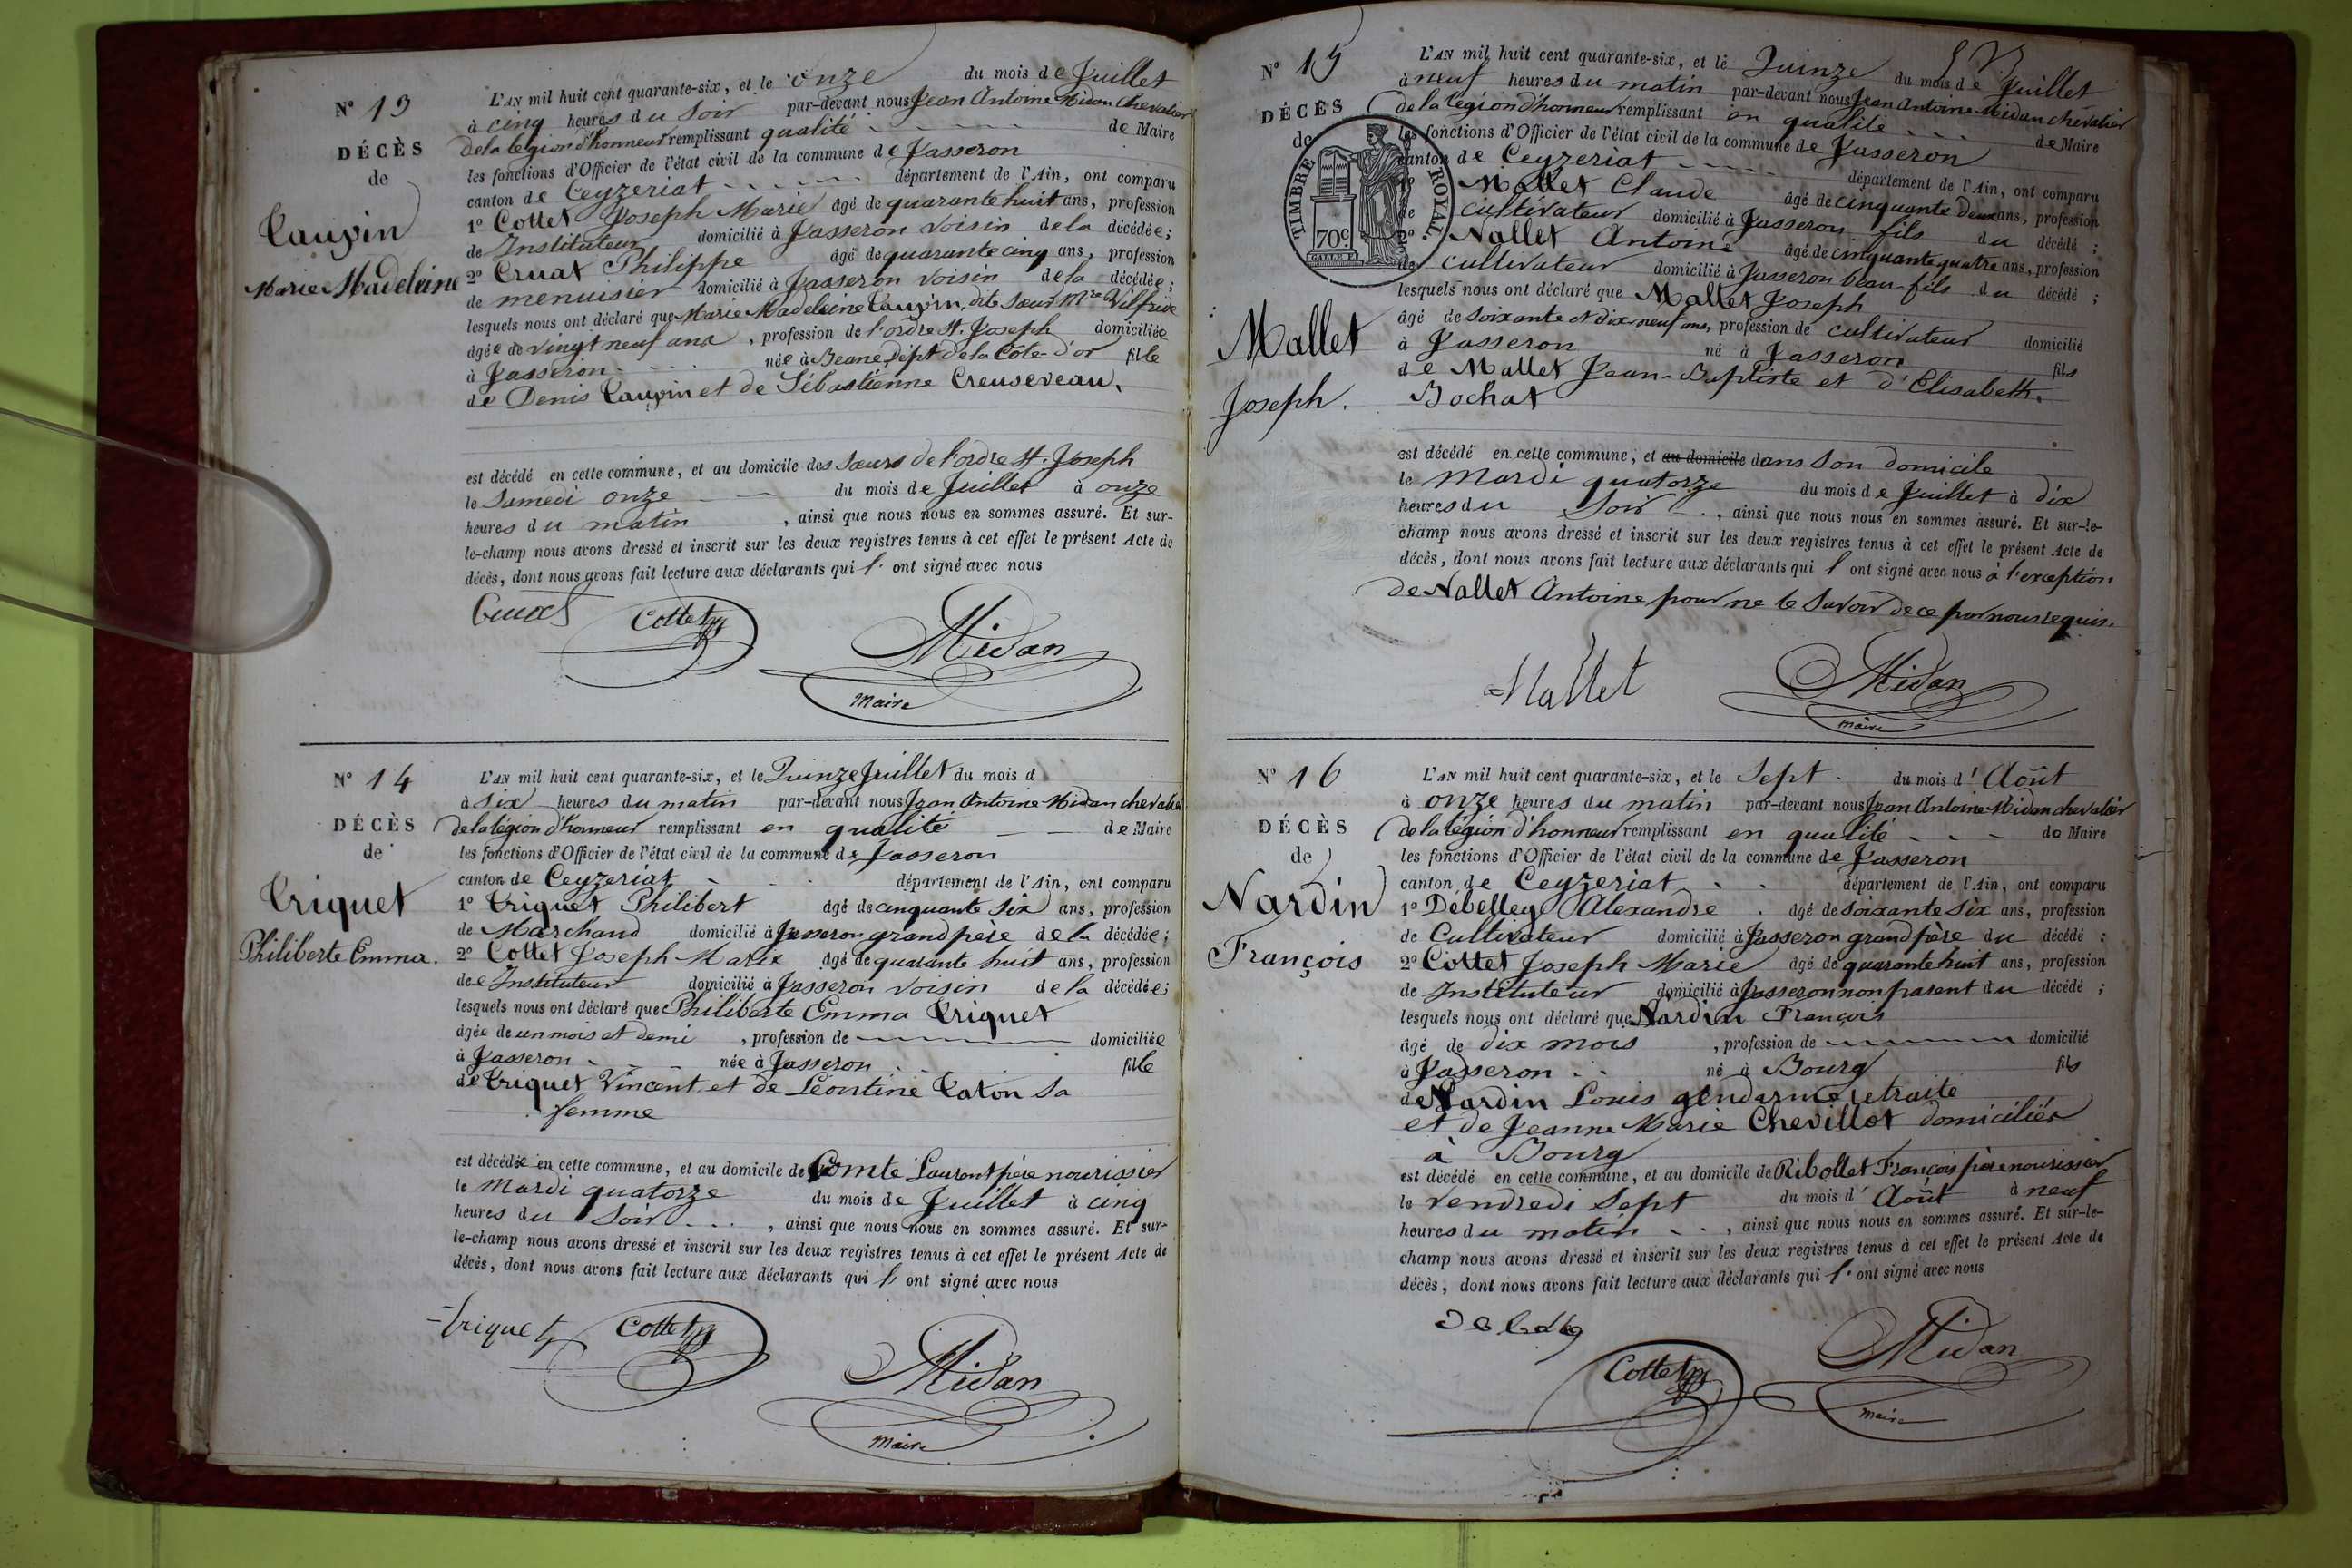 N° 13
DÉCÈS
de
Taupin
Marie Madeleine
L'AN mil huit cent quarante-six, et le onze du mois de Juillet
à cinq heures du soir par-devant nous Jean Antoine Midan chevalier
de la légion d'honneur remplissant qualité de Maire
les fonctions d'Officier de l'état civil de la commune de Jasseron
canton de Ceyzeriat département de l'Ain, ont comparu
1° Cottet Joseph Marie âgé de quarante huit ans, profession
de Instituteur domicilié à Jasseron voisin de la décédée;
2° Cruat Philippe âgé de quarante cinq ans, profession
de menuisier domicilié à Jasseron voisin de la décédée;
lesquels nous ont déclaré que Marie Madeleine Taupin, dite Sœur Wilfride
âgée de vingt neuf ans, profession de l'ordre St. Joseph domiciliée
à Jasseron née à Beane, Dépt de la Côte-d'or fille
de Denis Taupin et de Sébastienne Creuseveau,
est décédé en cette commune, et au domicile des sœurs de l'ordre St. Joseph
le Samedi onze du mois de Juillet à onze
heures du matin, ainsi que nous nous en sommes assuré. Et sur-
le-champ nous avons dressé et inscrit sur les deux registres tenus à cet effet le présent Acte de
décès, dont nous avons fait lecture aux déclarants qui l'ont signé avec nous
Cottet Midan
Maire
N° 14
DÉCÈS
de
Triquet
Philiberte Emma.
L'AN mil huit cent quarante-six, et le Quinze Juillet du mois d
à six heures du matin par-devant nous Jean Antoine Midan chevalier
de la légion d'honneur remplissant en qualité de Maire
les fonctions d'Officier de l'état civil de la commune de Jasseron
canton de Ceyzeriat département de l'Ain, ont comparu
1° Triquet Philibert âgé de cinquante six ans, profession
de Marchand domicilié à Jasseron grand père de la décédée;
2° Cottet Joseph Marie âgé de quarante huit ans, profession
de Instituteur domicilié à Jasseron voisin de la décédée;
lesquels nous ont déclaré que Philiberte Emma Triquet
âgée de un mois et demi, profession de domiciliée
à Jasseron née à Jasseron fille
de Triquet Vincent, et de Léontine Caton sa
femme
est décédée en cette commune, et au domicile de Comte Laurent père nourissier
le Mardi quatorze du mois de Juillet à cinq
heures du soir, ainsi que nous nous en sommes assuré. Et sur-
le-champ nous avons dressé et inscrit sur les deux registres tenus à cet effet le présent Acte de
décès, dont nous avons fait lecture aux déclarants qui l'ont signé avec nous
Triquet Cottet Midan
Maire
N° 15
DÉCÈS
de
TIMBRE ROYAL
70c
Mallet
Joseph.
L'AN mil huit cent quarante-six, et le Quinze du mois de Juillet
à neuf heures du matin par-devant nous Jean Antoine Midan chevalier
de la légion d'honneur remplissant en qualité de Maire
les fonctions d'Officier de l'état civil de la commune de Jasseron
canton de Ceyzeriat département de l'Ain, ont comparu
1° Mallet Claude âgé de cinquante deux ans, profession
de cultivateur domicilié à Jasseron fils du décédé;
2° Nallet Antoine âgé de cinquante quatre ans, profession
de cultivateur domicilié à Jasseron beau-fils du décédé;
lesquels nous ont déclaré que Mallet Joseph
âgé de soixante et dix-neuf ans, profession de cultivateur domicilié
à Jasseron né à Jasseron fils
de Mallet Jean-Baptiste et d'Elisabeth
Bochat
est décédé en cette commune, et au domicile dans son domicile
le Mardi quatorze du mois de Juillet à dix
heures du Soir, ainsi que nous nous en sommes assuré. Et sur-le-
champ nous avons dressé et inscrit sur les deux registres tenus à cet effet le présent Acte de
décès, dont nous avons fait lecture aux déclarants qui l'ont signé avec nous à l'exception
de Nallet Antoine pour ne le savoir de ce par nous requis.
Mallet Midan
maire
N° 16
DÉCÈS
de
Nardin
François
L'AN mil huit cent quarante-six, et le Sept du mois d'Août
à onze heures du matin par-devant nous Jean Antoine Midan chevalier
de la légion d'honneur remplissant en qualité de Maire
les fonctions d'Officier de l'état civil de la commune de Jasseron
canton de Ceyzeriat département de l'Ain, ont comparu
1° Debelley Alexandre âgé de soixante six ans, profession
de Cultivateur domicilié à Jasseron grand père du décédé;
2° Cottet Joseph Marie âgé de quarante huit ans, profession
de Instituteur domicilié à Jasseron non parent du décédé;
lesquels nous ont déclaré que Nardin François
âgé de dix mois, profession de domicilié
à Jasseron né à Bourg fils
de Nardin Louis gendarme retraité
et de Jeanne Marie Chevillot domiciliés
à Bourg
est décédé en cette commune, et au domicile de Ribollet François père nourissier
le vendredi sept du mois d'Août à neuf
heures du matin, ainsi que nous nous en sommes assuré. Et sur-le-
champ nous avons dressé et inscrit sur les deux registres tenus à cet effet le présent Acte de
décès, dont nous avons fait lecture aux déclarants qui l'ont signé avec nous
Cottet Midan
maire